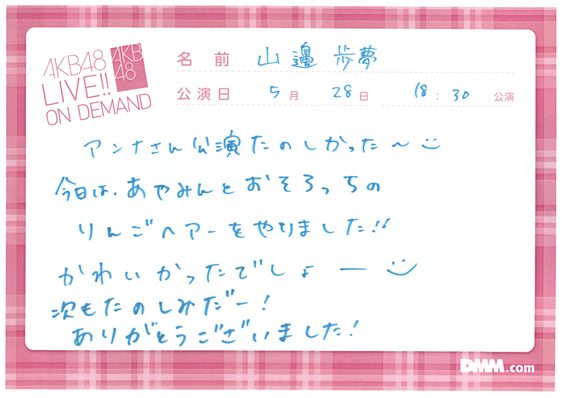 AKB48
LIVE!!
ON DEMAND
AKB
48
名前 山邉 歩夢
公演日 5月 28日 18:30 公演
アンナさん公演たのしかった〜
今日は、あやみんとおそろっちの
りんごヘアーをやりました!!
かわいかったでしょー
次もたのしみだー!
ありがとうございました!
DMM.com